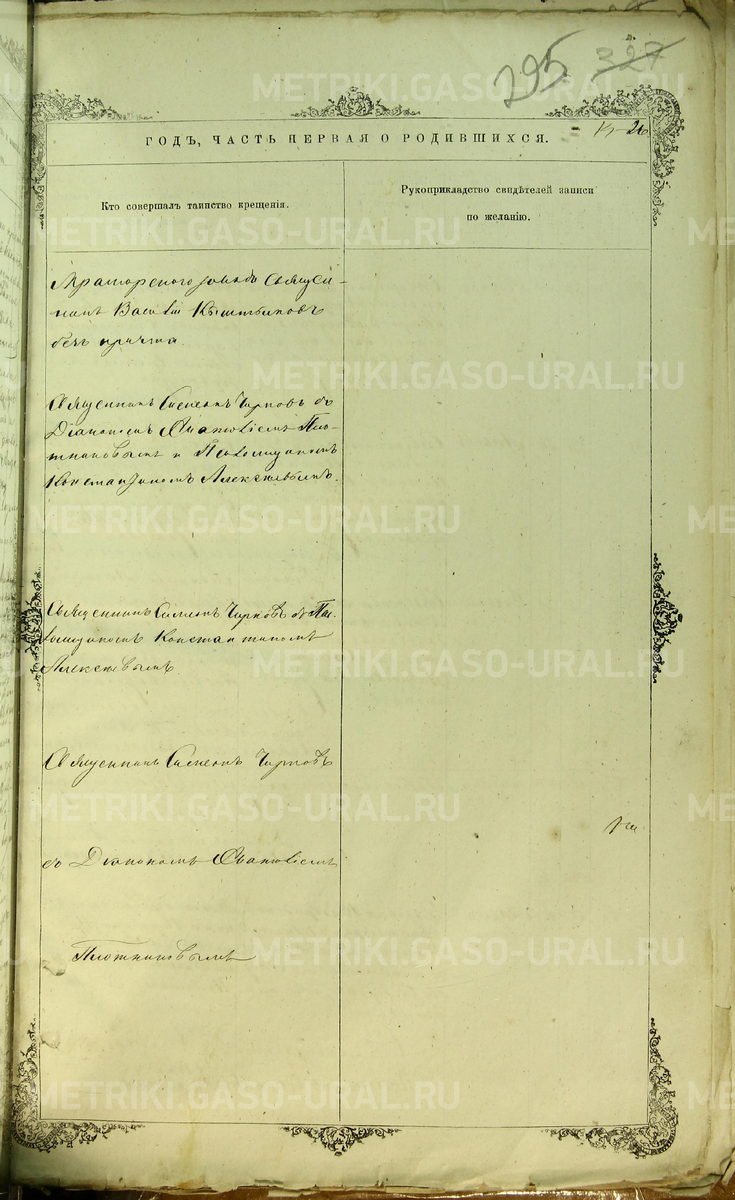 295 327
ГОДЪ, ЧАСТЬ ПЕРВАЯ О РОДИВШИХСЯ.
Кто совершалъ таинство крещенія.
Рукоприкладство свидѣтелей записи
по желанію.
Мраморского завода Священ-
никъ Василій
безъ причта.
Священникъ Симеонъ Чирковъ съ
Діакономъ Плот-
никовымъ и Псаломщикомъ
Константиномъ Алексѣевымъ.
Священникъ Симеонъ Чирковъ съ Пса-
ломщикомъ Константиномъ
Алексѣевымъ
Священникъ Симеонъ Чирковъ
съ Діакономъ
Плотниковымъ
METRIKI.GASO-URAL.RU